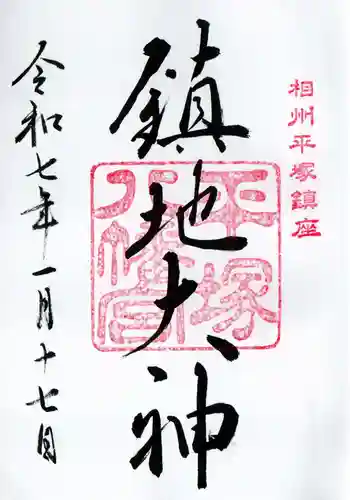 相州平塚鎮座
鎮地大神
平塚
八幡宮
令和七年一月十七日